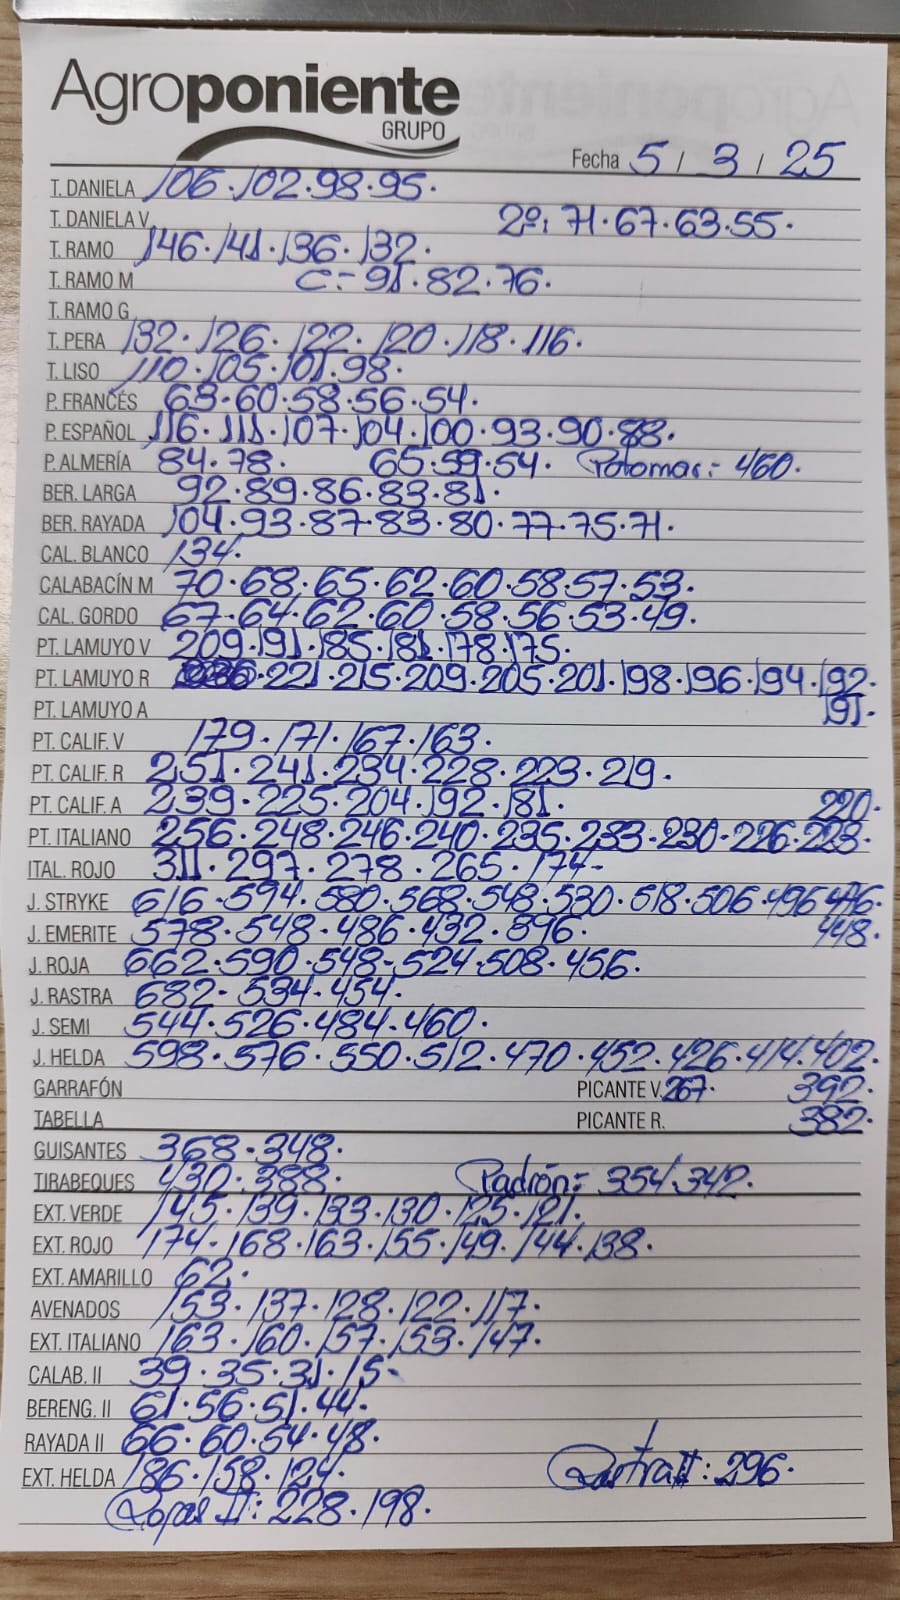 Agroponiente
GRUPO
Fecha 5 / 3 / 25
T. DANIELA 106.102.98.95.
T. DANIELA V. 2º: 71.67.63.55.
T. RAMO 146.141.136.132.
T. RAMO M C= 91.82.76.
T. RAMO G
T. PERA 132.126.122.120.118.116.
T. LISO 110.105.101.98.
P. FRANCÉS 63.60.58.56.54.
P. ESPAÑOL 116.111.107.104.100.93.90.88.
P. ALMERÍA 84.78. 65.59.54. Palomar: 460.
BER. LARGA 92.89.86.83.81.
BER. RAYADA 104.93.87.83.80.77.75.71.
CAL. BLANCO 134.
CALABACÍN M 70.68.65.62.60.58.57.53.
CAL. GORDO 67.64.62.60.58.56.53.49.
PT. LAMUYO V 209.191.185.181.178.175.
PT. LAMUYO R 221.215.209.205.201.198.196.194.192.
PT. LAMUYO A 191.
PT. CALIF. V 179.171.167.163.
PT. CALIF. R 251.241.234.228.223.219.
PT. CALIF. A 239.225.204.192.181. 220.
PT. ITALIANO 256.248.246.240.235.233.230.226.223.
ITAL. ROJO 311.297.278.265.174-
J. STRYKE 616.594.580.568.548.530.518.506.496.476.
J. EMERITE 578.548.486.432.396. 448.
J. ROJA 662.590.548-524.508.456.
J. RASTRA 682-534.454.
J. SEMI 544.526.484-460.
J. HELDA 598.576.550.512.470.452.426.414.402.
GARRAFÓN PICANTE V. 267. 392.
TABELLA PICANTE R. 382.
GUISANTES 368-348.
TIRABEQUES 430.388. Padrón= 354.342.
EXT. VERDE 145.139.133.130.125.121.
EXT. ROJO 174-168.163.155.149.144.138.
EXT. AMARILLO 62.
AVENADOS 153.137.128.122.117.
EXT. ITALIANO 163.160.157.153.147.
CALAB. II 39.35.31.15-
BERENG. II 61.56.51.44.
RAYADA II 66.60.54.48.
EXT. HELDA 186.158.124. Rastra II: 296.
Rojas II: 228.198.